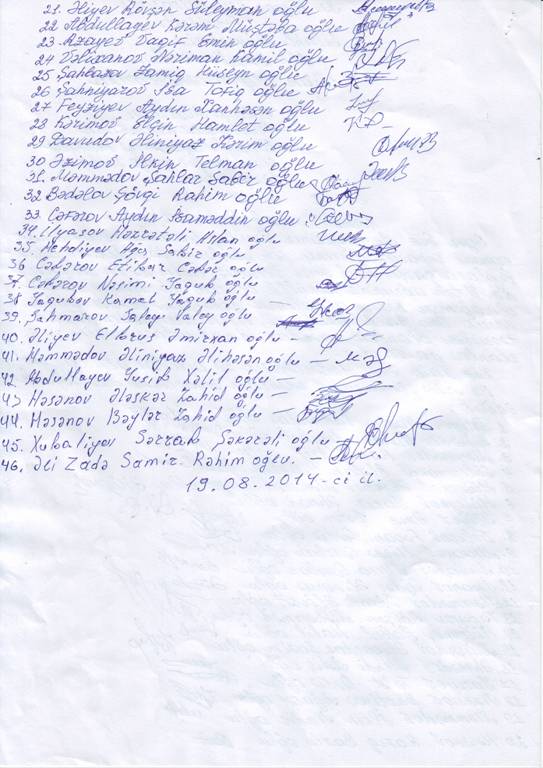 21. Əliyev Rövşən Süleyman oğlu
22 Abdullayev Kərəm Müstəba oğlu
23. Azayev Vaqif Emin oğlu
24 Vəlixanov Nəriman Kamil oğlu
25 Şahbazov Zamiq Hüseyn oğlu
26 Şahniyarov İsa Tofiq oğlu
27 Feyziyev Aydın Xanhəsən oğlu
28 Kərimov Elçin Hamlet oğlu
29 Davudov Əliniyaz Kərim oğlu
30 Əzimov Elkin Telman oğlu
31. Məmmədov Şahlar Sabir oğlu
32 Bədəlov Şövgi Rahim oğlu
33. Cəfərov Aydın İsaməddin oğlu
34. İlyasov Aslan oğlu
35. Mehdiyev Sabir oğlu
36 Cəfərov Etibar Cəfər oğlu
37. Cəfərov Nəsimi Yaqub oğlu
38 Yaqubov Kamal Yaqub oğlu —
39. Şahmarov Valey oğlu
40. Əliyev Elbrus Əmirxan oğlu —
41. Məmmədov Əliniyaz Əlihəsən oğlu — Məf
42. Abdullayev Yusif Xəlil oğlu —
43 Həsənov Ələskər Zahid oğlu —
44. Həsənov Bəylər Zahid oğlu —
45. Xubaliyev Şəkərəli oğlu
46. Əli Zadə Samir Rəhim oğlu. —
19.08.2014-ci il.